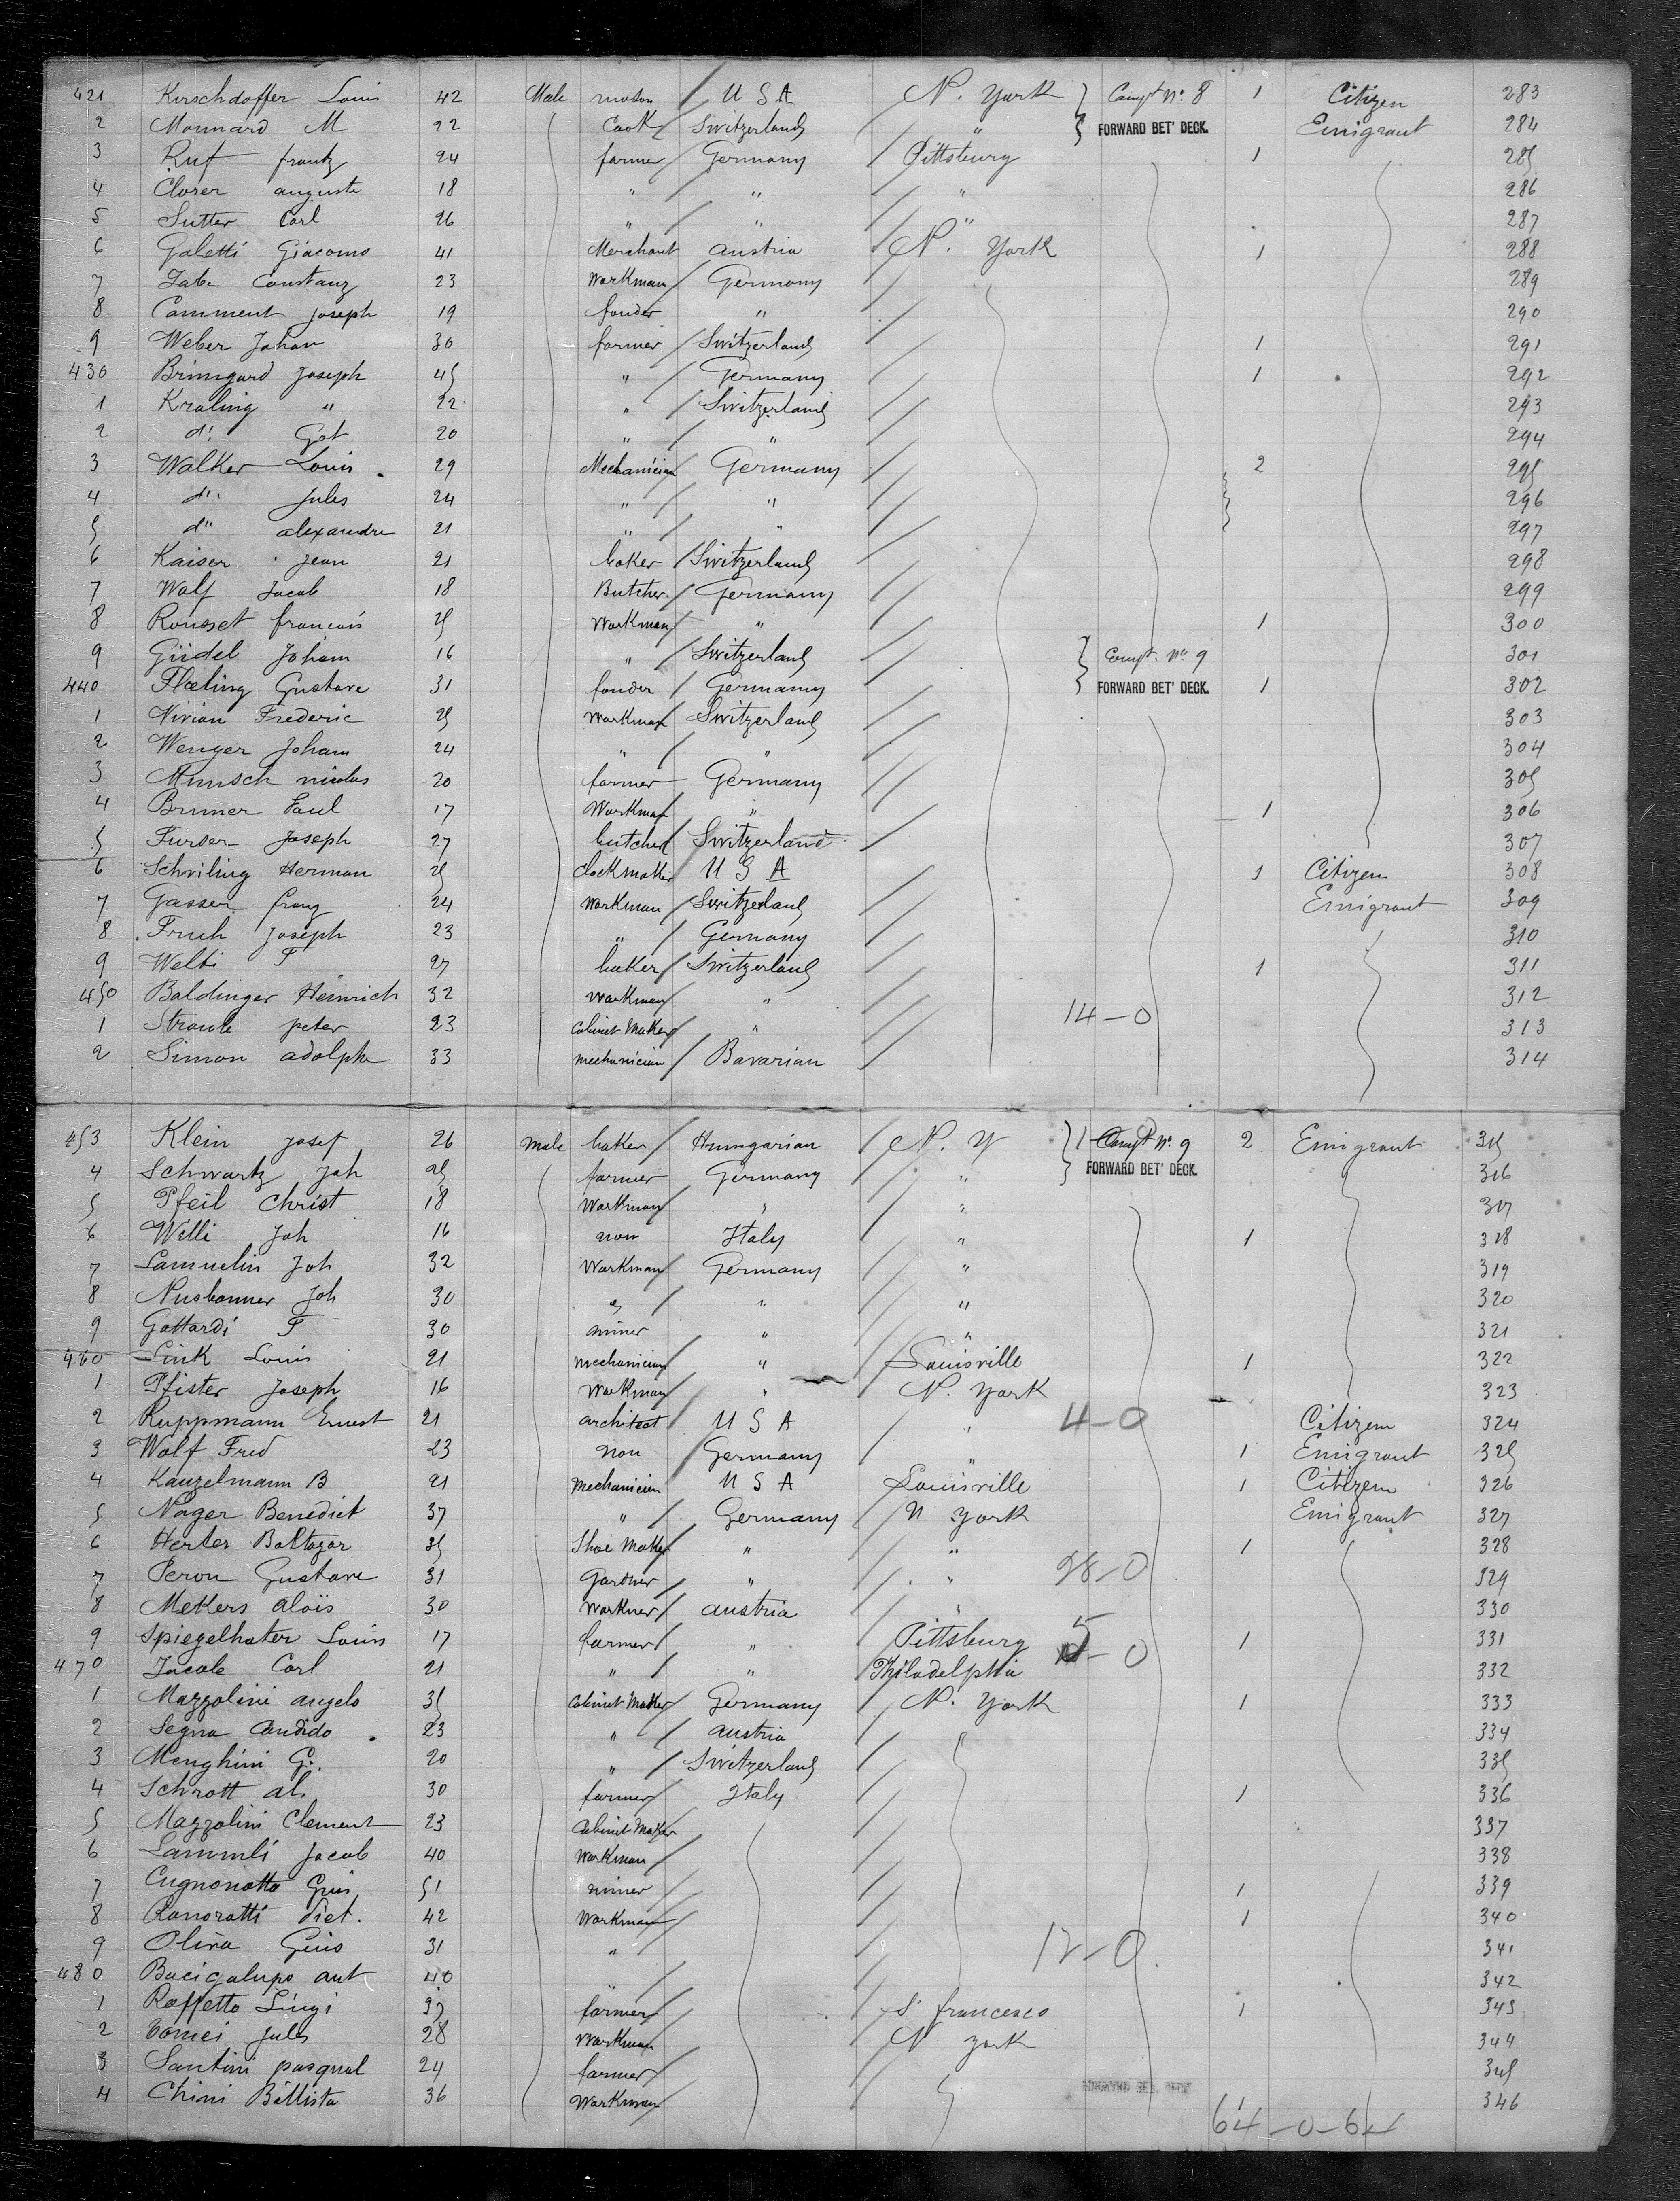 421 Kirschdoffer Louis 42 Male mason U S A N. York Compt No. 8 1 Citizen 283
2 Monnard M 22 Cook Switzerland " FORWARD BET' DECK. Emigrant 284
3 Ruf frantz 24 farmer Germany Pittsburg 1 285
4 Clorer auguste 18 " " " 286
5 Sutter Carl 26 " " " 287
6 Galetti Giacomo 41 Merchant austria N. York 1 288
7 Constanz 23 Workman Germany 289
8 Comment Joseph 19 fonder " 290
9 Weber Johan 30 farmer Switzerland 1 291
430 Bringard Joseph 45 " Germany 1 292
1 Kraling " 22 " Switzerland 293
2 d° Got 20 " " 294
3 Walker Louis 29 Mechanician Germany 2 295
4 d° Jules 24 " " 296
5 d° alexandre 21 " " 297
6 Kaiser Jean 21 baker Switzerland 298
7 Wolf Jacob 18 Butcher Germany 299
8 Rousset francois 25 Workman " 1 300
9 Güdel Joham 16 " Switzerland Compt. No. 9 301
440 Gustave 31 fonder Germany FORWARD BET' DECK. 1 302
1 Vivian Frederic 25 Workman Switzerland 303
2 Wenger Joham 24 " " 304
3 Munsch nicolas 20 farmer Germany 305
4 Bruner Paul 17 Workman " 1 306
5 Furser Joseph 27 butcher Switzerland 307
6 Schriling Herman 25 clockmaker U S A 1 Citizen 308
7 Gasser franz 24 Workman Switzerland Emigrant 309
8 Fruh Joseph 23 " Germany 310
9 Welti F 27 baker Switzerland 1 311
450 Baldinger Heinrich 32 Workman " 14-0 312
1 Straule peter 23 Cabinet Maker " 313
2 Simon adolphe 33 mechanician Bavarian 314
453 Klein Josef 26 male baker Hungarian N. Y Compt No. 9 2 Emigrant 315
4 Schwartz Joh 25 farmer Germany " FORWARD BET' DECK. 316
5 Pfeil Christ 18 Workman " " 317
6 Willi Joh 16 non Italy " 1 318
7 Samuelin Joh 32 Workman Germany " 319
8 Nusbaumer Joh 30 " " " 320
9 Gottardi F 30 miner " " 321
460 Link Louis 21 mechanician " Louisville 1 322
1 Pfister Joseph 16 Workman " N. York 323
2 Ruppmann Ernest 21 architect U S A " 4-0 Citizen 324
3 Wolf Fred 23 non Germany " 1 Emigrant 325
4 Kanzelmann B 21 Mechanicien U S A Louisville 1 Citizen 326
5 Nager Benedict 37 " Germany N york Emigrant 327
6 Herter Baltazar 35 Shoe Maker " " 1 328
7 Peron Gustave 31 Gardner " " 28-0 329
8 Mekers aloïs 30 Workner austria " 330
9 Spiegelhater Louis 17 farmer " Pittsburg 5-0 1 331
470 Jacole Carl 21 " " Philadelphia 332
1 Mazzolini angelo 35 Cabinet Maker Germany N. York 1 333
2 Segna Candido 23 " austria 334
3 Menghini G. 20 " Switzerland 335
4 Schrott al. 30 farmer Italy 1 336
5 Mazzolini Clement 23 Cabinet Maker 337
6 Sammli Jacob 40 Workman 338
7 Cugnonatto Gius 51 miner 1 339
8 Ronoratti Piet. 42 Workman 1 340
9 Oliva Gius 31 " 12-0 341
480 Bacigalupo ant 40 342
1 Raffetto Luigi 37 farmer S. francesco 1 343
2 Comei Jules 28 Workman N york 344
3 Santini pasqual 24 farmer 345
4 Chini Battista 36 Workman 346
64-0-64